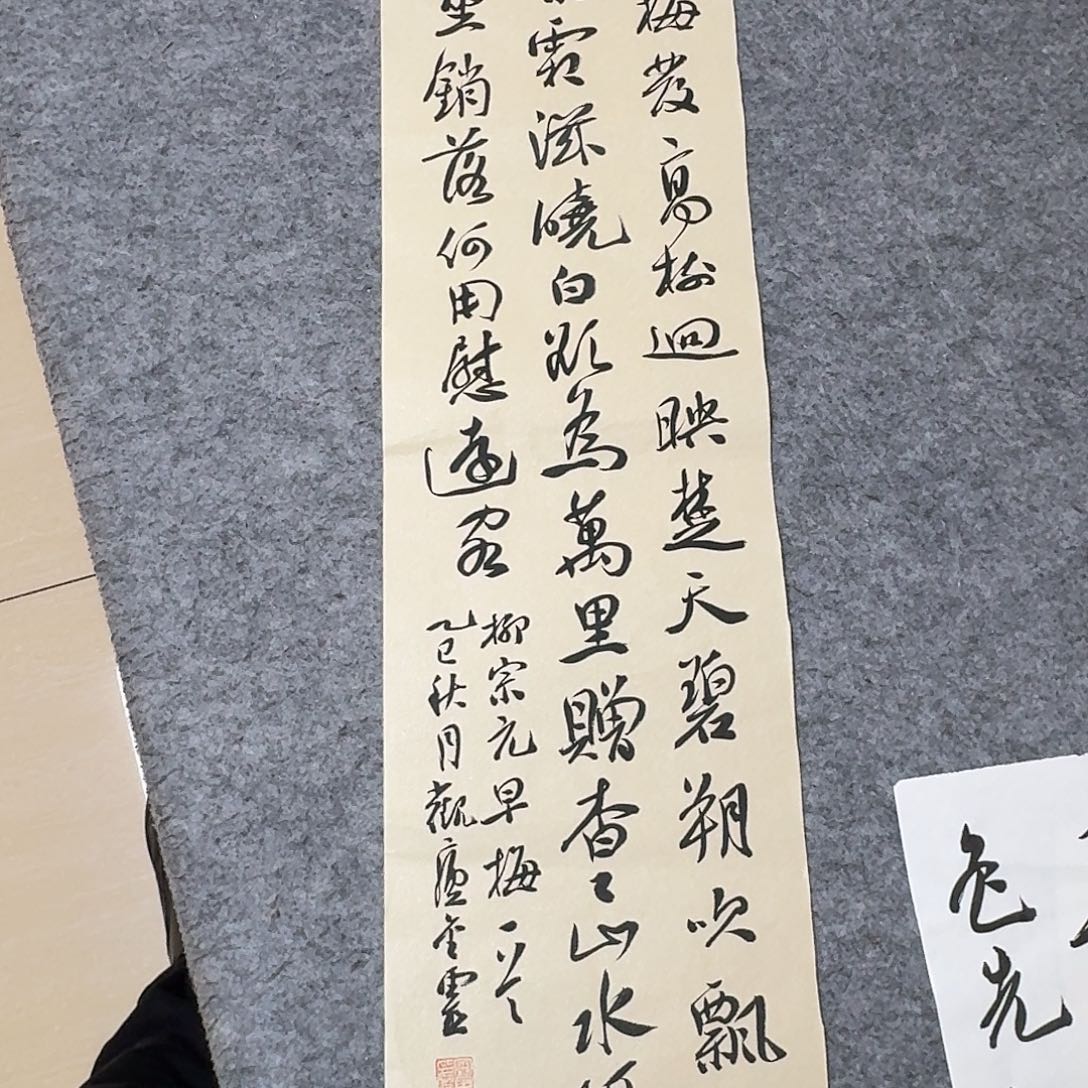 梅發高樹迥映楚天碧朔吹飄
霜滋曉白欲為萬里贈杳〻山水
坐銷落何用慰遠客
柳宗元早梅一首
乙巳秋月觀金靈
色光